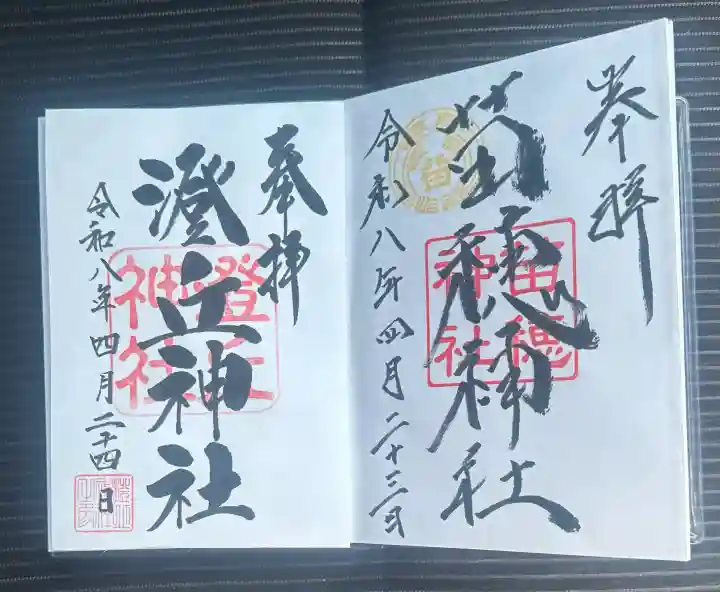 奉拝
苗穂神社
令和八年四月二十三日
苗穂
神社
奉拝
澄丘神社
令和八年四月二十四日
澄丘
神社